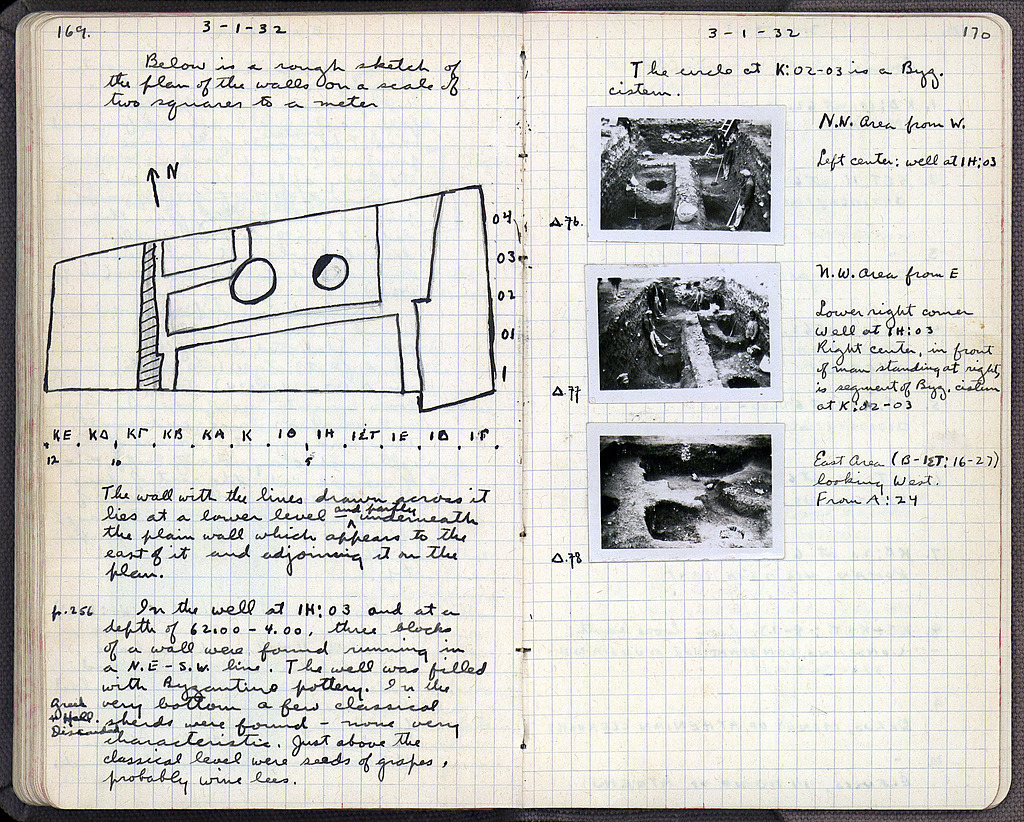 169.
3-1-32
Below is a rough sketch of
the plan of the walls on a scale of
two squares to a meter
N
04
03
02
01
1
KE KΔ KΓ KB KA K IΘ IH IΣT IE IΔ IΓ
12 10 5
The wall with the lines drawn across it
lies at a lower level – and partly underneath
the plain wall which appears to the
east of it and adjoining it on the
plan.
p. 256
In the well at IH:03 and at a
depth of 62.00-4.00, three blocks
of a wall were found running in
a N.E-S.W. line. The well was filled
with Byzantine pottery. In the
very bottom a few classical
sherds were found – none very
characteristic. Just above the
classical level were seeds of grapes,
probably wine lees.
Greek
+ Hell.
Discarded
3-1-32
170
The circle at K:02-03 is a Byz.
cistern.
N.N. Area from W.
Left center: well at IH:03
Δ.76.
N.W. Area from E
Lower right corner
well at IH:03
Right center, in front
of man standing at right,
is segment of Byz. cistern
at K:02-03
Δ.77
East Area (B-IΣT:16-27)
looking West.
From A:24
Δ.78